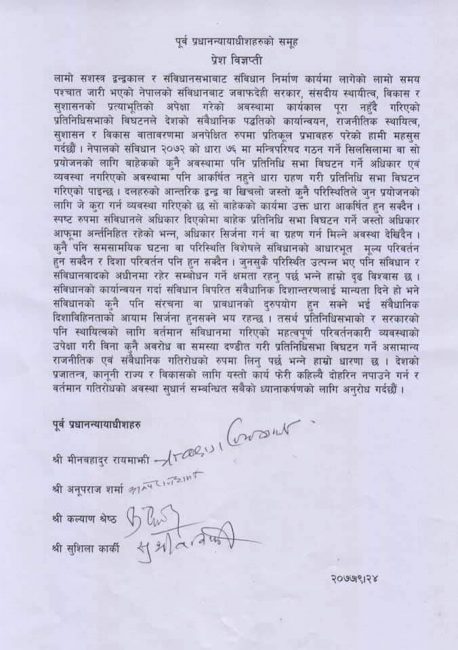 पूर्व प्रधानन्यायाधीशहरुको समूह
प्रेश विज्ञप्ती
लामो सशस्त्र द्वन्द्वकाल र संविधानसभाबाट संविधान निर्माण कार्यमा लागेको लामो समय
पश्चात जारी भएको नेपालको संविधानबाट जवाफदेही सरकार, संसदीय स्थायीत्व, विकास र
सुशासनको प्रत्याभुतिको अपेक्षा गरेको अवस्थामा कार्यकाल पूरा नहुँदै गरिएको
प्रतिनिधिसभाको विघटनले देशको संवैधानिक पद्धतिको कार्यान्वयन, राजनीतिक स्थायित्व,
सुशासन र विकास वातावरणमा अनपेक्षित रुपमा प्रतिकूल प्रभावहरु परेको हामी महसुस
गर्दछौं । नेपालको संविधान २०७२ को धारा ७६ मा मन्त्रिपरिषद गठन गर्ने सिलसिलामा वा सो
प्रयोजनको लागि बाहेकको कुनै अवस्थामा पनि प्रतिनिधि सभा विघटन गर्ने अधिकार एवं
व्यवस्था नगरिएको अवस्थामा पनि आकर्षित नहुने धारा ग्रहण गरी प्रतिनिधि सभा विघटन
गरिएको पाइन्छ । दलहरुको आन्तरिक द्वन्द्व वा खिचलो जस्तो कुनै परिस्थितिले जुन प्रयोजनको
लागि जे कुरा गर्न व्यवस्था गरिएको छ सो बाहेकको कार्यमा उक्त धारा आकर्षित हुन सक्दैन ।
स्पष्ट रुपमा संविधानले अधिकार दिएकोमा बाहेक प्रतिनिधि सभा विघटन गर्ने जस्तो अधिकार
आफूमा अर्न्तनिहित रहेको भन्न, अधिकार सिर्जना गर्न वा ग्रहण गर्न मिल्ने अवस्था देखिदैन ।
कुनै पनि समसामयिक घटना वा परिस्थिति विशेषले संविधानको आधारभूत मूल्य परिवर्तन
हुन सक्दैन र दिशा परिवर्तन पनि हुन सक्दैन । जुनसुकै परिस्थिति उत्पन्न भए पनि संविधान र
संविधानवादको अधीनमा रहेर सम्बोधन गर्ने क्षमता रहनु पर्छ भन्ने हाम्रो दृढ विश्वास छ ।
संविधानको कार्यान्वयन गर्दा संविधान विपरित संवैधानिक दिशान्तरणलाई मान्यता दिने हो भने
संविधानको कुनै पनि संरचना वा प्रावधानको दुरुपयोग हुन सक्ने भई संवैधानिक
दिशाविहिनताको आयाम सिर्जना हुनसक्ने भय रहन्छ । तसर्थ प्रतिनिधिसभाको र सरकारको
पनि स्थायित्वको लागि वर्तमान संविधानमा गरिएको महत्वपूर्ण परिवर्तनकारी व्यवस्थाको
उपेक्षा गरी विना कुनै अवरोध वा समस्या दण्डीत गरी प्रतिनिधिसभा विघटन गर्ने असामान्य
राजनीतिक एवं संवैधानिक गतिरोधको रुपमा लिनु पर्छ भन्ने हाम्रो धारणा छ । देशको
प्रजातन्त्र, कानूनी राज्य र विकासको लागि यस्तो कार्य फेरी कहिल्यै दोहरिन नपाउने गर्न र
वर्तमान गतिरोधको अवस्था सुधार्न सम्बन्धित सबैको ध्यानाकर्षणको लागि अनुरोध गर्दछौं ।
पूर्व प्रधानन्यायाधीशहरु
श्री मीनबहादुर रायमाझी
श्री अनुपराज शर्मा
श्री कल्याण श्रेष्ठ
श्री सुशिला कार्की
२०७७।९।२४